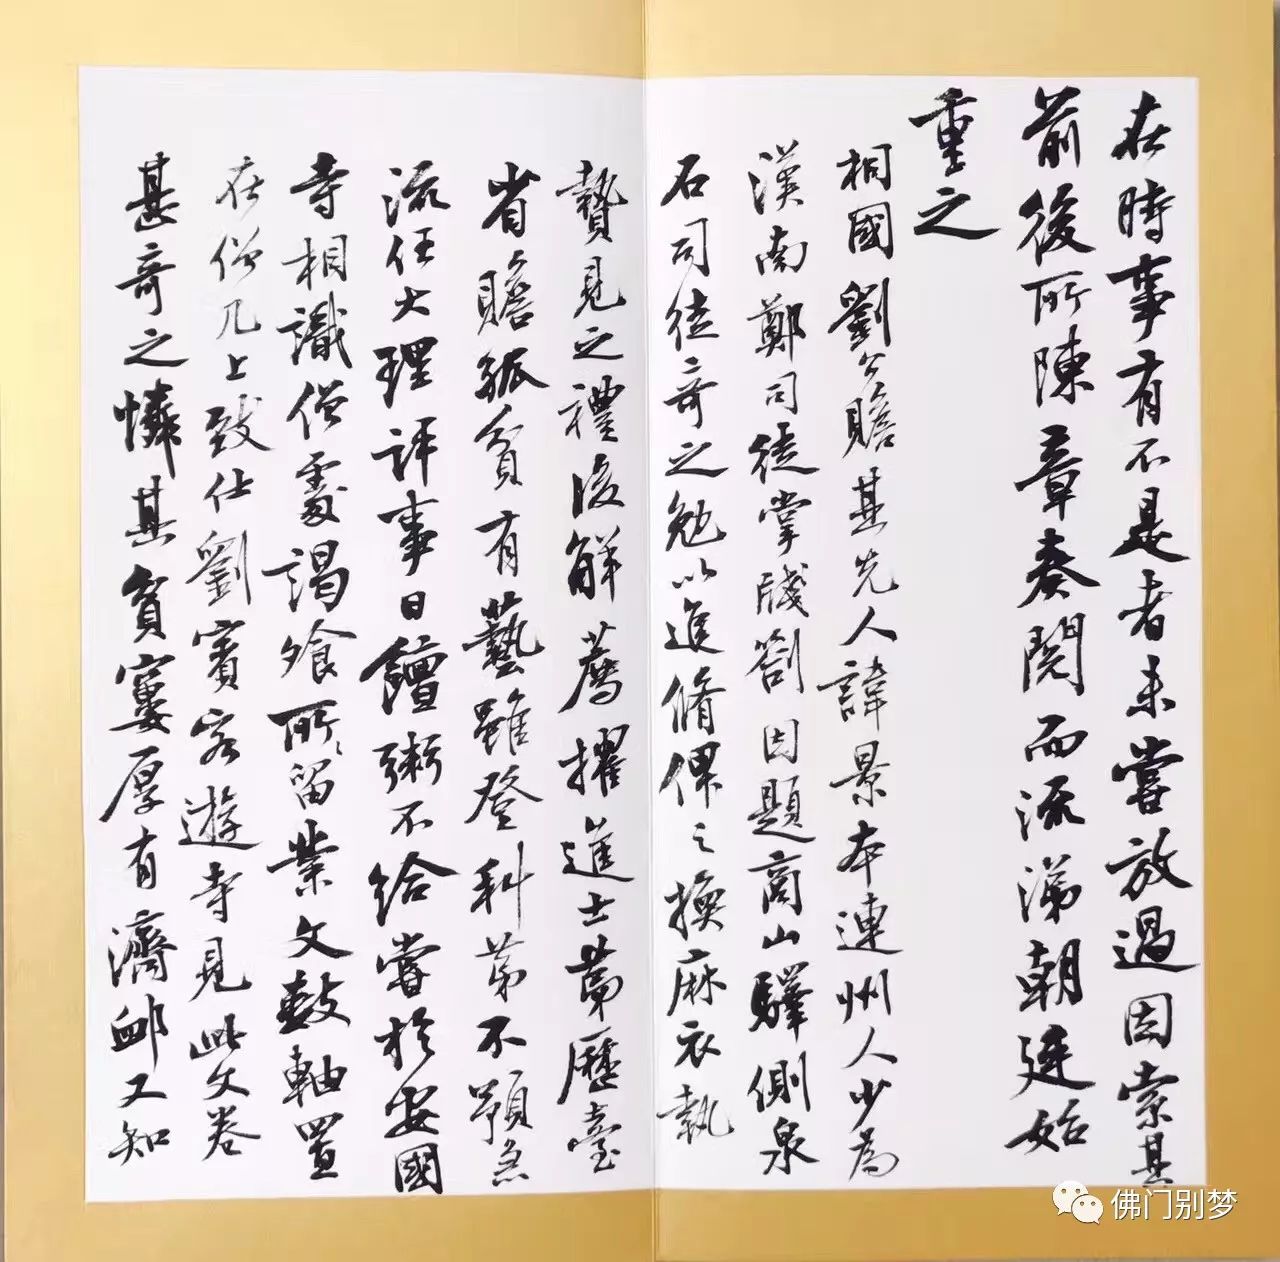 在時事有不是者未嘗放過因索其
前後所陳章奏閱而流涕朝廷始
重之
相國劉公瞻其先人諱景本連州人少為
漢南鄭司徒掌牋劄因題商山驛側泉
石司徒奇之勉以進脩俾之換麻衣執
贄見之禮後解薦擢進士第歷臺
省瞻孤貧有藝雖登科第不預急
流任大理評事日饘粥不給嘗於安國
寺相識僧處謁飡所所留業文數軸置
在僧几上致仕劉賓客遊寺見此文卷
甚奇之憐其貧窶厚有濟卹又知
佛门别梦